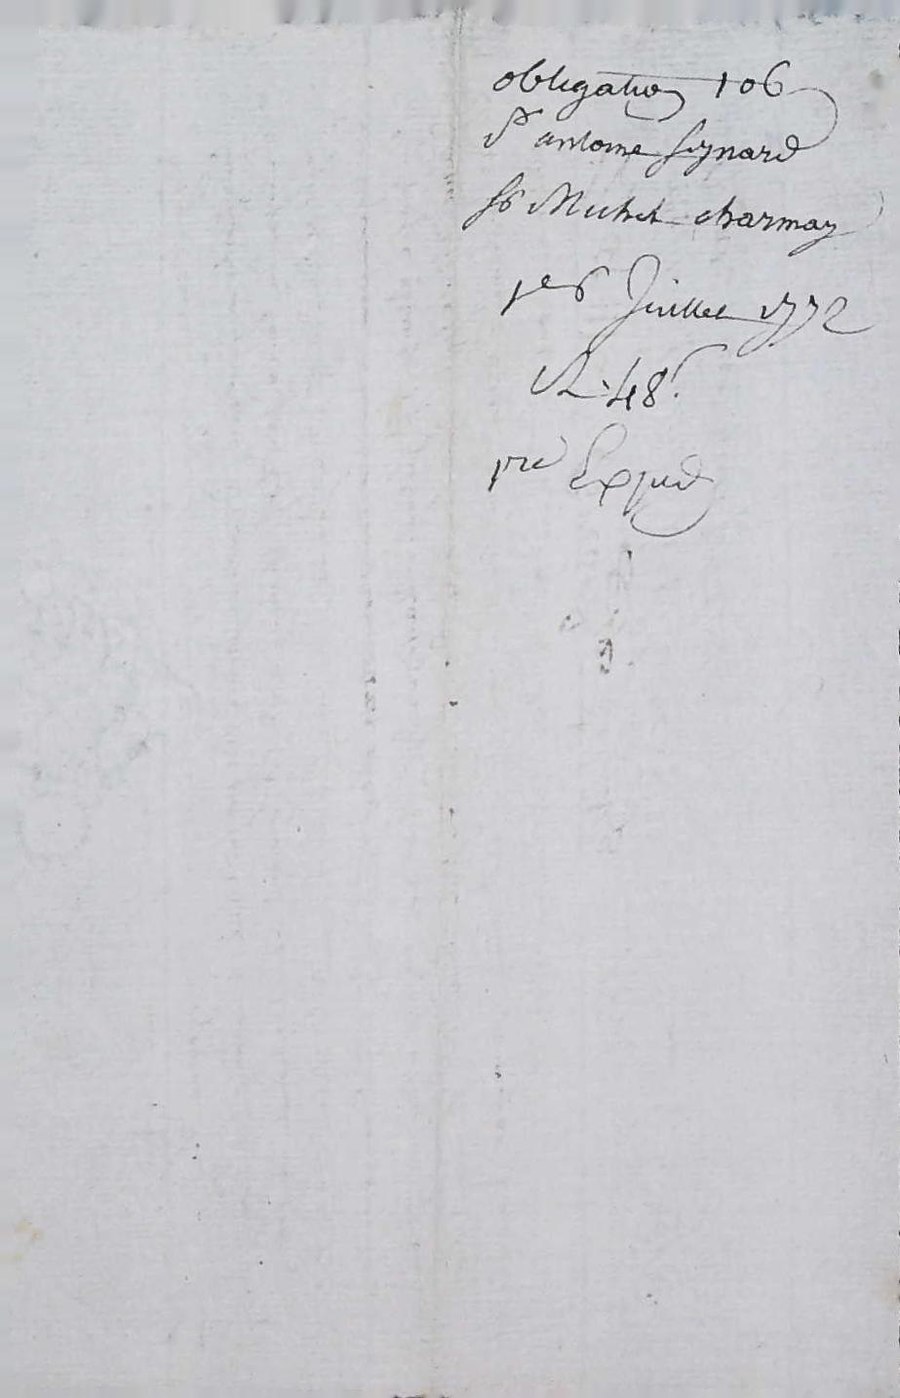 obligation 106
Sr antoine Synard
Sr Michel charmay
1er Juillet 1772
R. 48 s
pre Exped